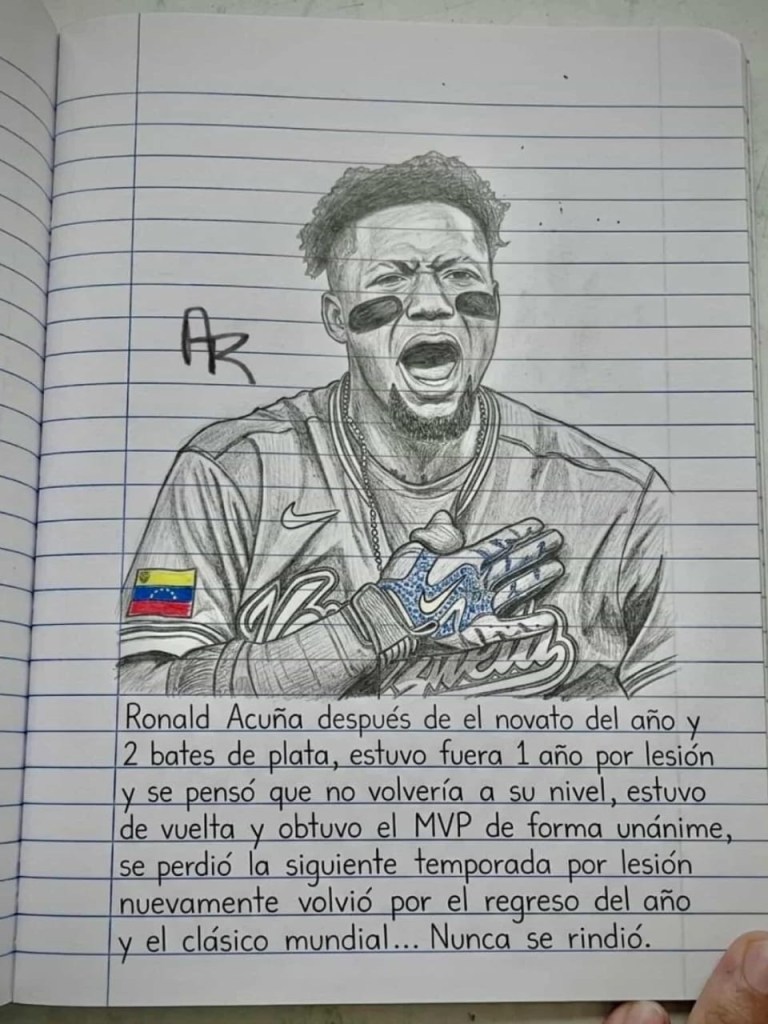 AR
Ronald Acuña después de el novato del año y
2 bates de plata, estuvo fuera 1 año por lesión
y se pensó que no volvería a su nivel, estuvo
de vuelta y obtuvo el MVP de forma unánime,
se perdió la siguiente temporada por lesión
nuevamente volvió por el regreso del año
y el clásico mundial... Nunca se rindió.